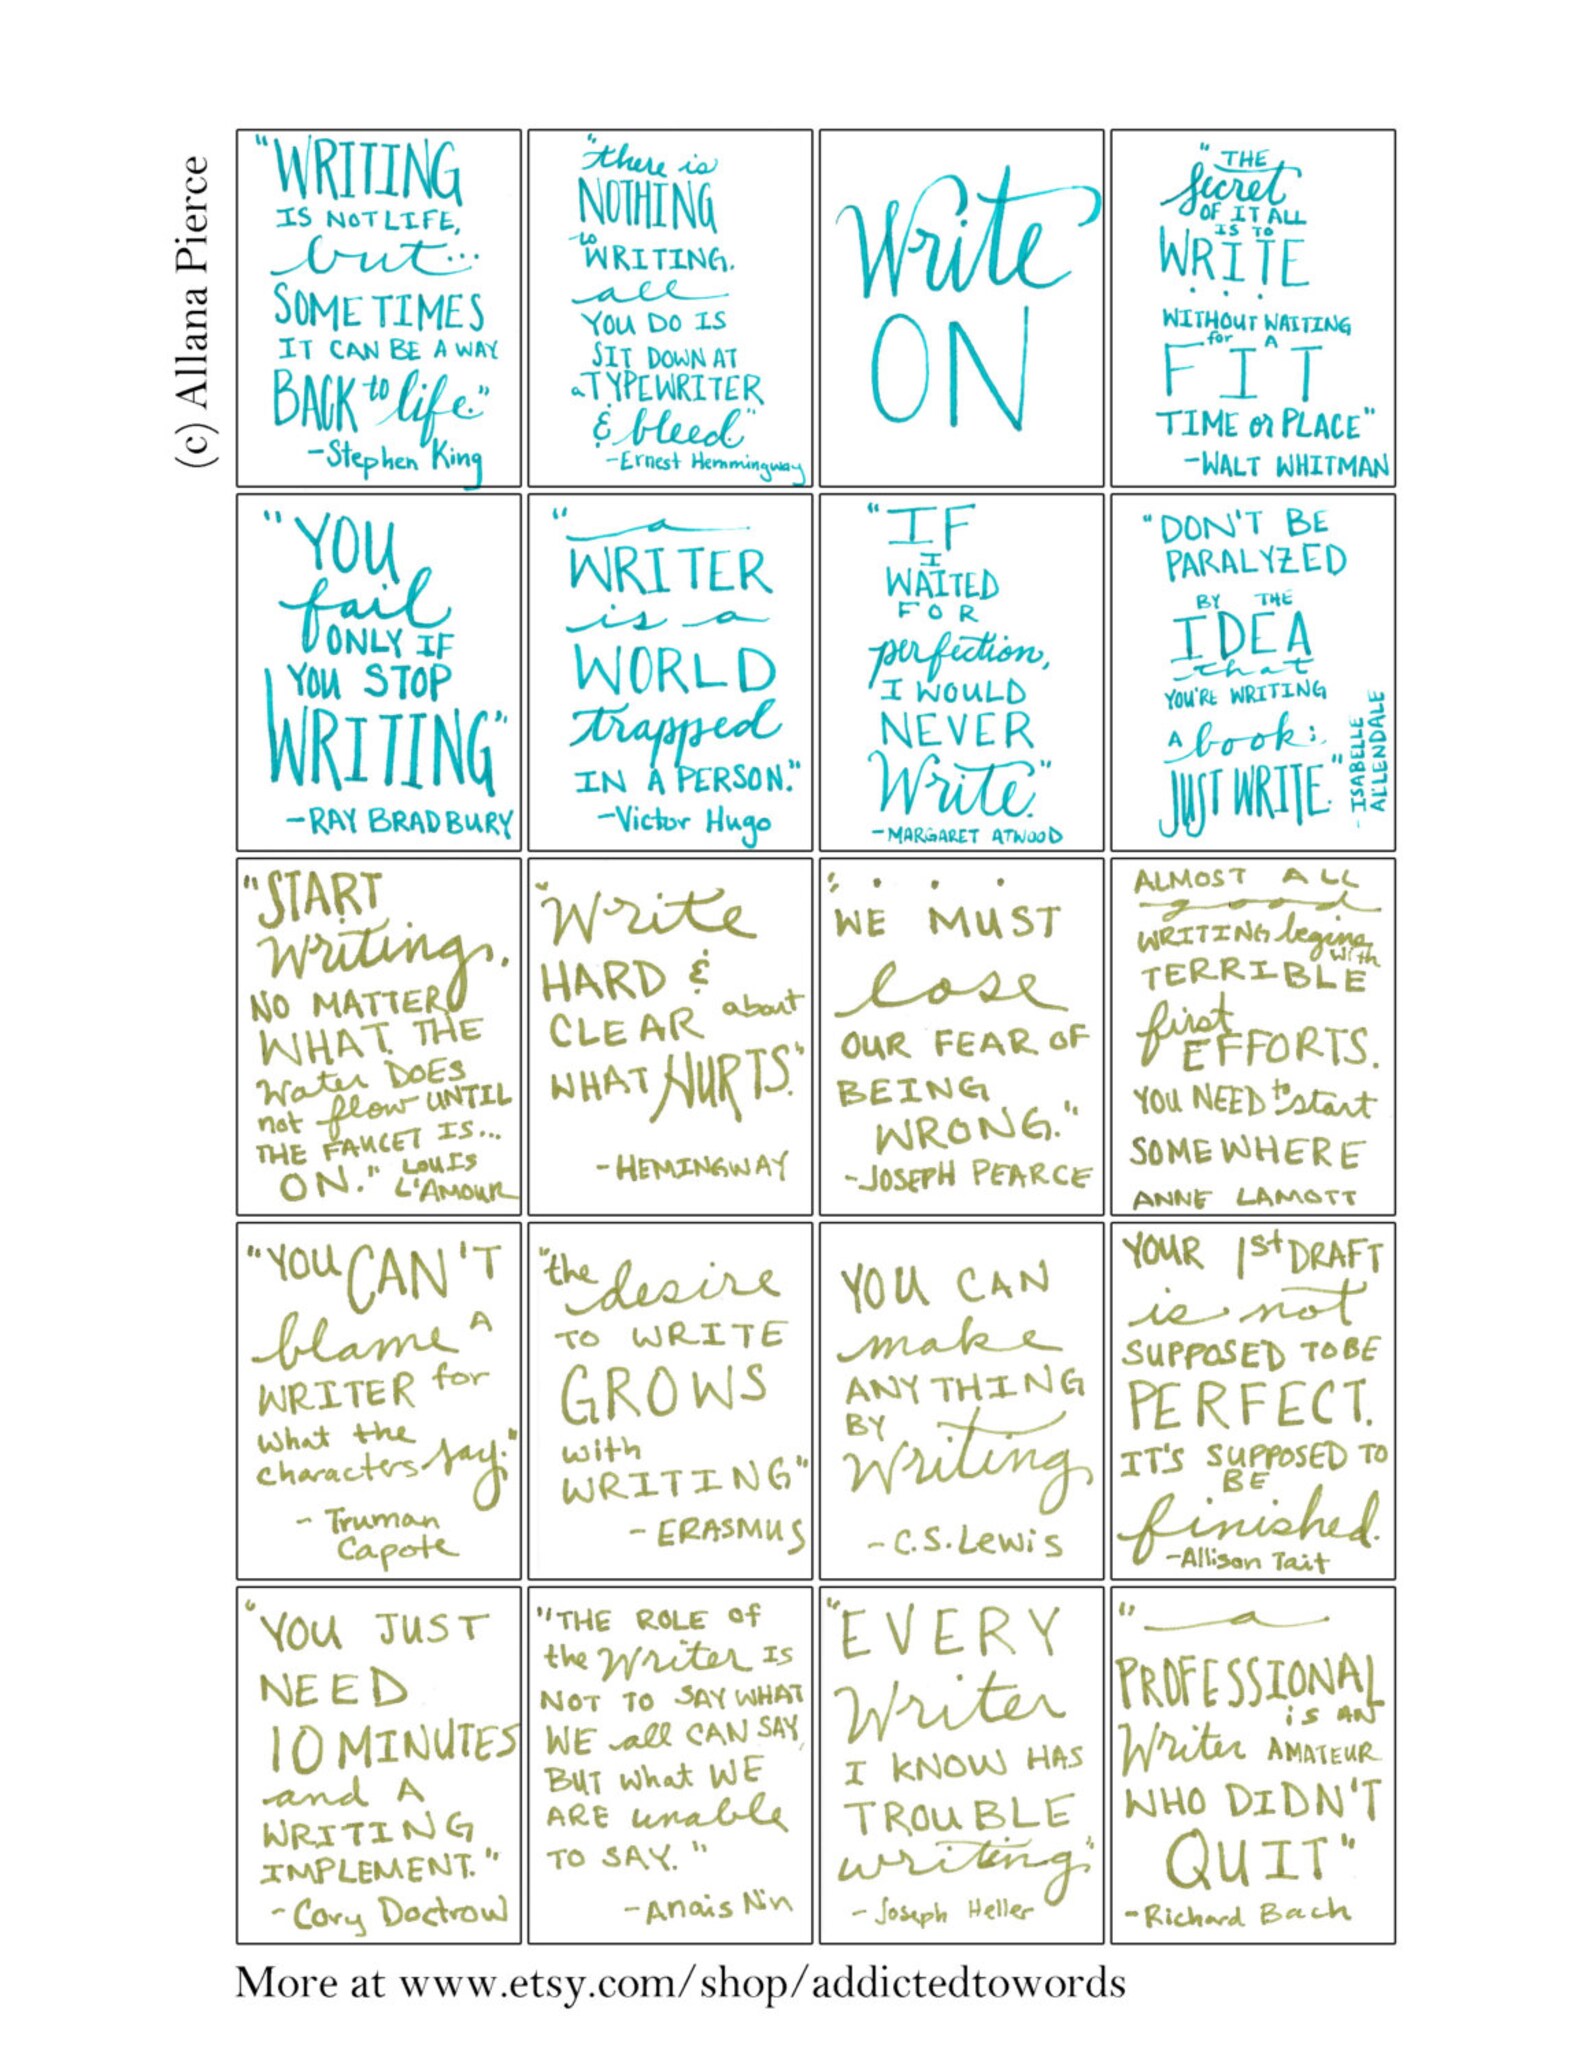 (c) Allana Pierce
"WRITING
IS NOT LIFE,
but...
SOMETIMES
IT CAN BE A WAY
BACK to life."
-Stephen King
"there is
NOTHING
to
WRITING.
all
YOU DO IS
SIT DOWN AT
a TYPEWRITER
& bleed."
-Ernest Hemmingway
Write
ON
"THE
secret
OF IT ALL
IS TO
WRITE
...
WITHOUT WAITING
for A
FIT
TIME or PLACE"
-WALT WHITMAN
"YOU
fail
ONLY IF
YOU STOP
WRITING"
-RAY BRADBURY
"a
WRITER
is a
WORLD
trapped
IN A PERSON."
-Victor Hugo
"IF
I
WAITED
FOR
perfection,
I WOULD
NEVER
Write."
-MARGARET ATWOOD
"DON'T BE
PARALYZED
BY THE
IDEA
that
YOU'RE WRITING
A book;
JUST WRITE."
-ISABELLE
ALLENDALE
"START
Writing,
NO MATTER
WHAT. THE
Water DOES
not flow UNTIL
THE FAUCET IS...
ON." LOUIS
L'AMOUR
"Write
HARD &
CLEAR about
WHAT HURTS."
-HEMINGWAY
"...
WE MUST
lose
OUR FEAR OF
BEING
WRONG."
-JOSEPH PEARCE
ALMOST ALL
good
WRITING begins
with
TERRIBLE
first
EFFORTS.
YOU NEED to start
SOMEWHERE
ANNE LAMOTT
"YOU CAN'T
blame A
WRITER for
what the
characters say."
- Truman
Capote
"the desire
TO WRITE
GROWS
with
WRITING"
- ERASMUS
YOU CAN
make
ANYTHING
BY
Writing
- C.S. Lewis
YOUR 1st DRAFT
is not
SUPPOSED TO BE
PERFECT.
IT'S SUPPOSED TO
BE
finished.
-Allison Tait
"YOU JUST
NEED
10 MINUTES
and A
WRITING
IMPLEMENT."
- Cory Doctrow
"THE ROLE of
the Writer IS
NOT TO SAY WHAT
WE all CAN SAY,
BUT what WE
ARE unable
TO SAY."
-Anais Nin
"EVERY
Writer
I KNOW HAS
TROUBLE
writing."
- Joseph Heller
"a
PROFESSIONAL
is AN
Writer AMATEUR
WHO DIDN'T
QUIT"
-Richard Bach
More at www.etsy.com/shop/addictedtowords